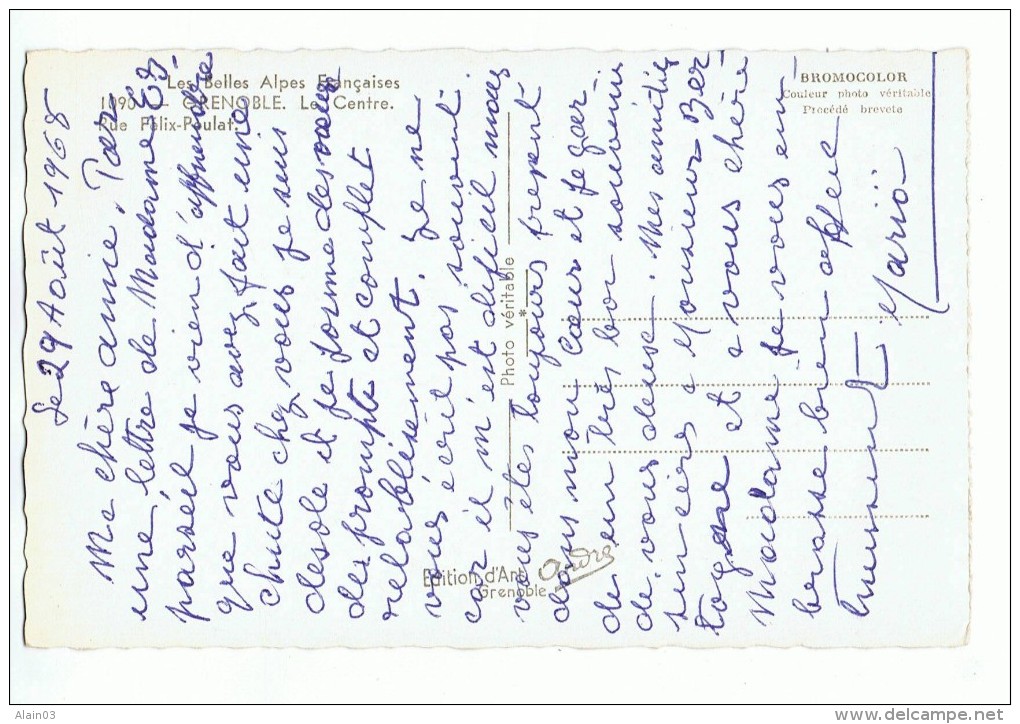 Les Belles Alpes Françaises
1090 — GRENOBLE. Le Centre.
Rue Félix-Poulat.
BROMOCOLOR
Couleur photo véritable
Procédé breveté
Photo véritable
Edition d'Art
André
Grenoble
Le 29 Août 1968
Ma chère amie, Par
une lettre de Madame
je vien d'apprendre
que vous avez fait une
chute chez vous je suis
desole et je forme des vœux
des prompte et complet
retablisement. Je ne
vous écrit pas souvent
car il m'est dificil mais
vous êtes toujours present
dans mon Cœur et je gar
de un très bon souvenir
de vous deux. Mes amitiés
sincères a Monsieur Ber
togne et a vous chère
Madame je vous em
brasse bien affec
tueusement
Mario
Alain03
www.delcampe.net